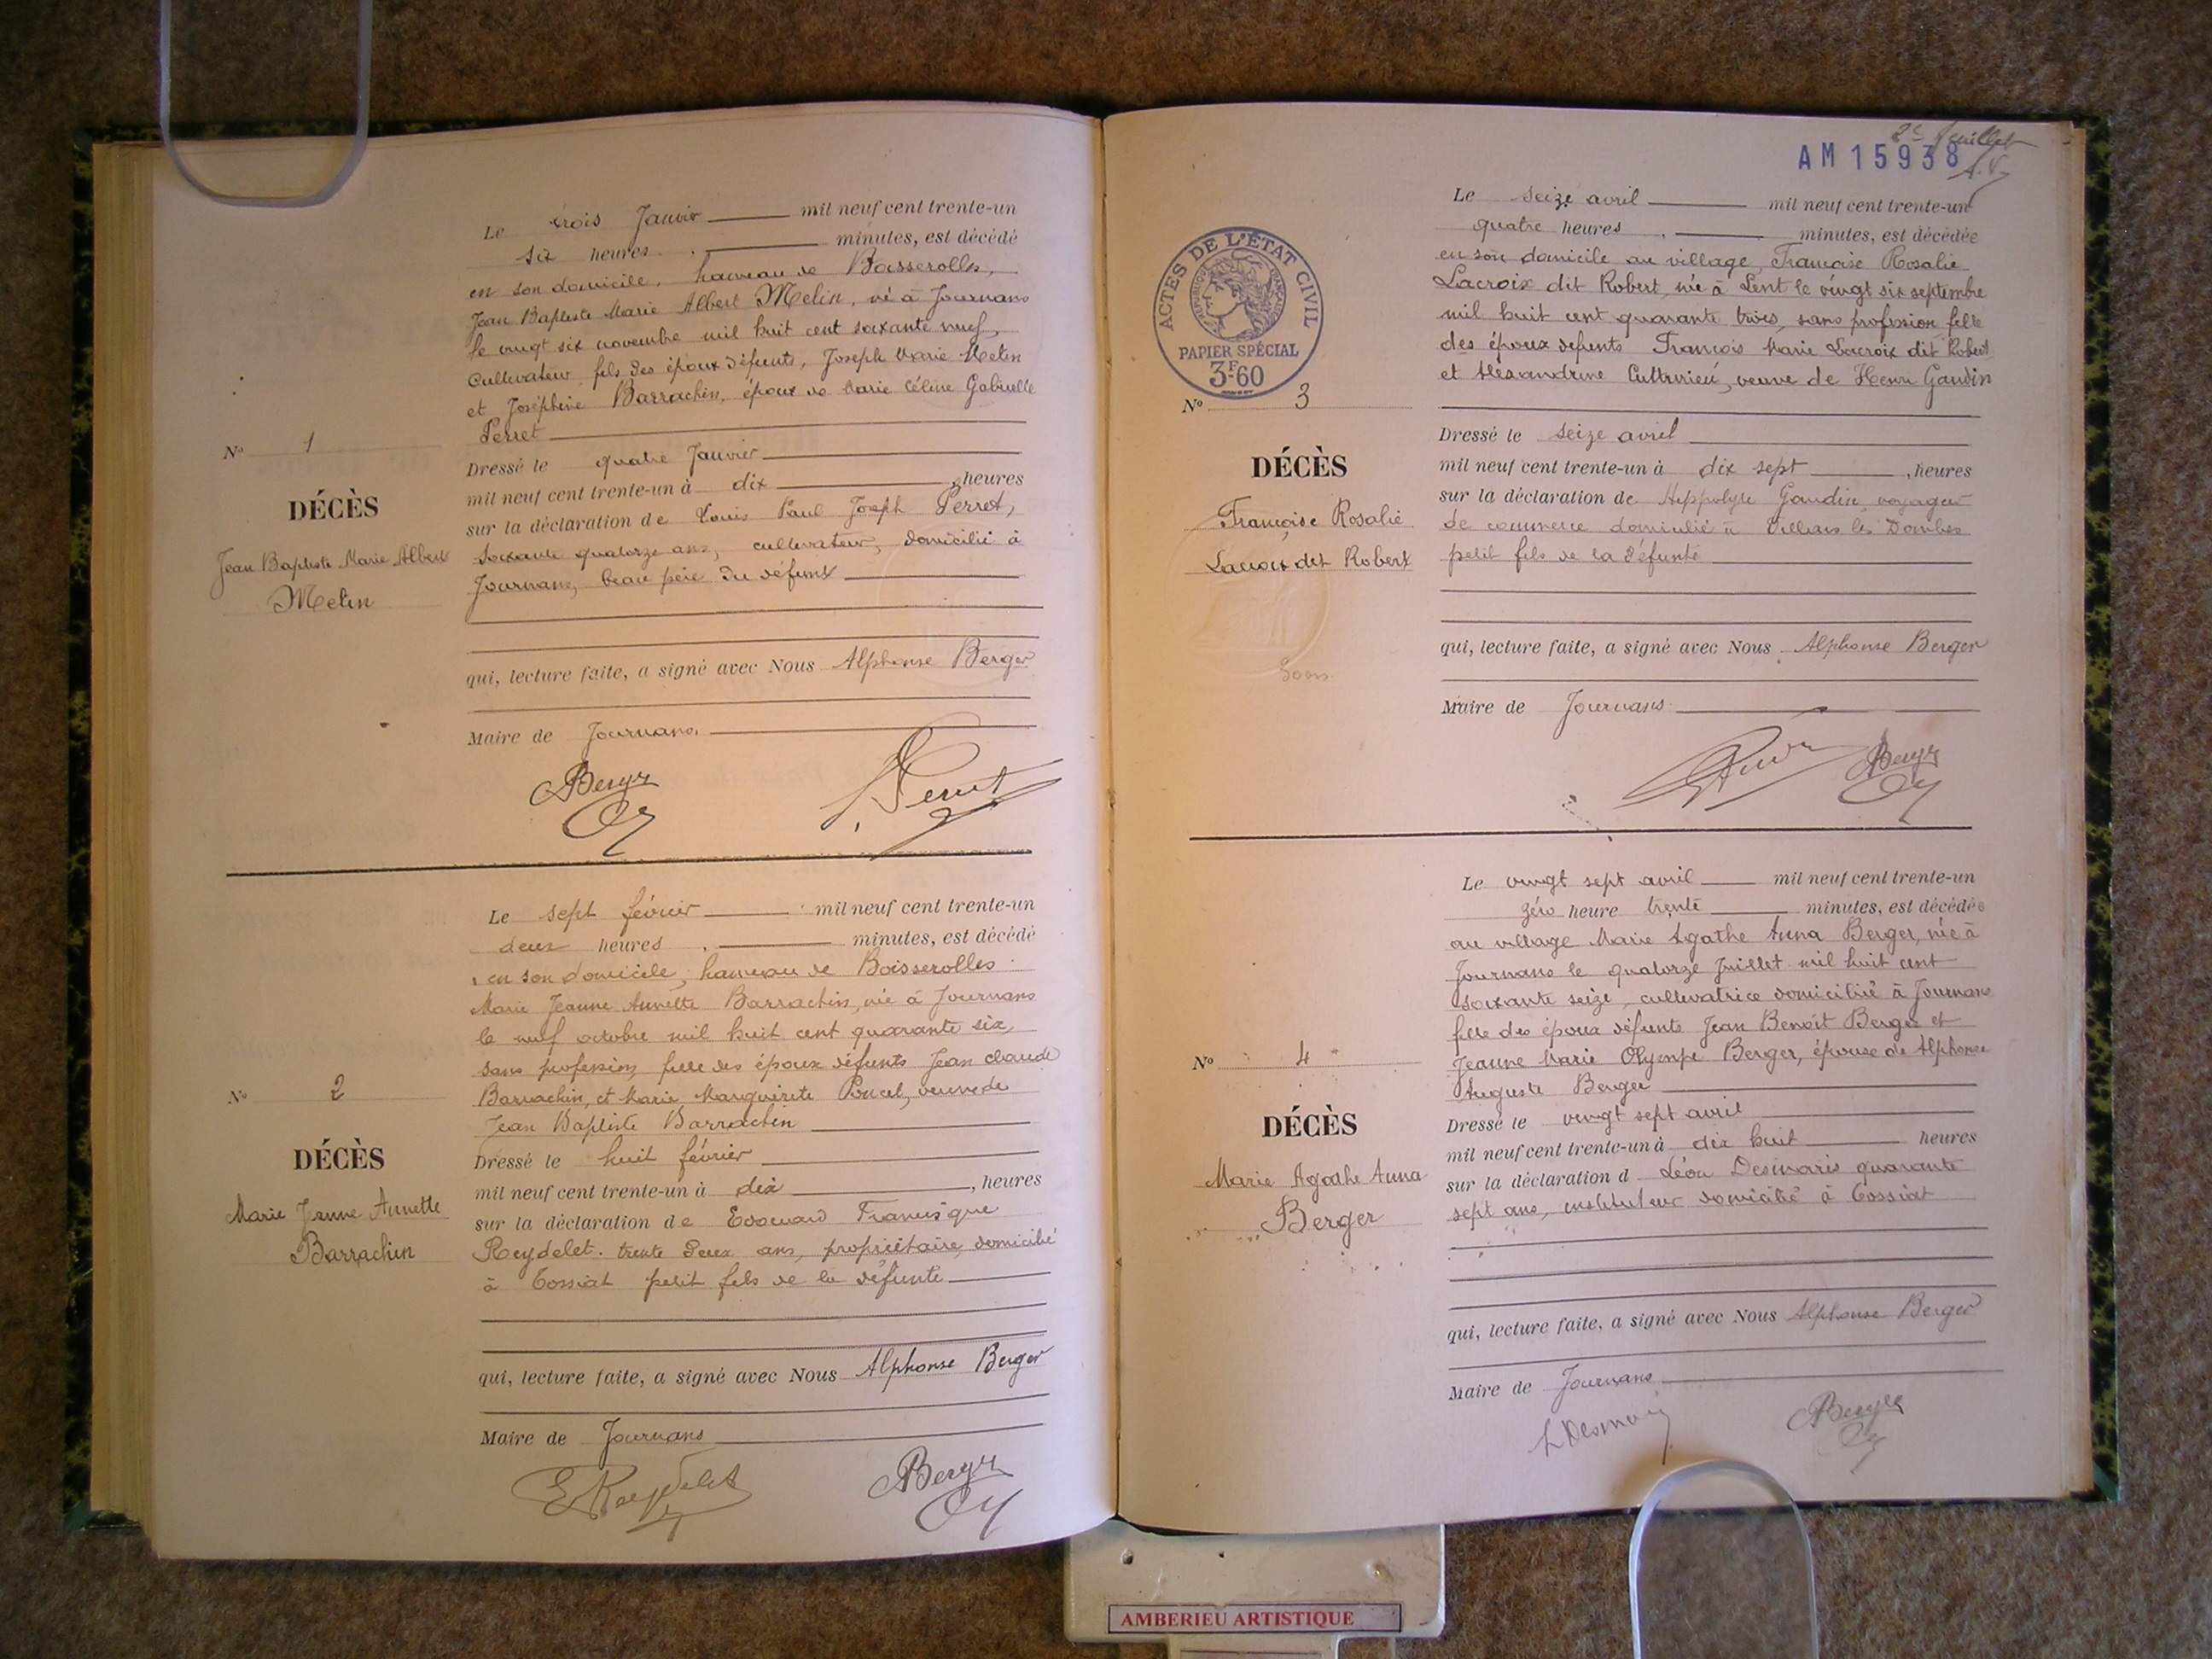 Le trois Janvier mil neuf cent trente-un
six heures minutes, est décédé
en son domicile, hameau de Boisserolles,
Jean Baptiste Marie Albert Melin, né à Journans
le vingt six novembre mil huit cent soixante neuf,
cultivateur, fils des époux défunts, Joseph Marie Melin
et Joséphine Barrachin, époux de Marie Céline Gabrielle
Perret
Nº 1
DÉCÈS
Jean Baptiste Marie Albert
Melin
Dressé le quatre Janvier
mil neuf cent trente-un à dix , heures
sur la déclaration de Louis Paul Joseph Perret,
soixante quatorze ans, cultivateur, domicilié à
Journans, beau père du défunt
qui, lecture faite, a signé avec Nous Alphonse Berger
Maire de Journans.
Berger
Perret
Le sept février mil neuf cent trente-un
deux heures minutes, est décédé
en son domicile, hameau de Boisserolles
Marie Jeanne Annette Barrachin, née à Journans
le neuf octobre mil huit cent quarante six,
sans profession, fille des époux défunts Jean Claude
Barrachin, et Marie Marguerite Poncet, veuve de
Jean Baptiste Barrachin
Nº 2
DÉCÈS
Marie Jeanne Annette
Barrachin
Dressé le huit février
mil neuf cent trente-un à dix , heures
sur la déclaration de Edouard Francisque
Reydelet. trente deux ans, propriétaire, domicilié
à Tossiat petit fils de la défunte
qui, lecture faite, a signé avec Nous Alphonse Berger
Maire de Journans
E Reydelet
Berger
2e feuillet
AM 15938
ACTES DE L'ÉTAT CIVIL
PAPIER SPÉCIAL
3F60
Le seize avril mil neuf cent trente-un
quatre heures minutes, est décédée
en son domicile au village, Françoise Rosalie
Lacroix dit Robert, née à Lent le vingt six septembre
mil huit cent quarante trois, sans profession fille
des époux défunts François Marie Lacroix dit Robert
et Alexandrine , veuve de Henri Gaudin
Nº 3
DÉCÈS
Françoise Rosalie
Lacroix dit Robert
Dressé le seize avril
mil neuf cent trente-un à dix sept , heures
sur la déclaration de Hippolyte Gaudin, voyageur
de commerce domicilié à Villars les Dombes
petit fils de la défunte
qui, lecture faite, a signé avec Nous Alphonse Berger
Maire de Journans
Berger
Le vingt sept avril mil neuf cent trente-un
zéro heure trente minutes, est décédée
au village Marie Agathe Anna Berger, née à
Journans le quatorze Juillet mil huit cent
soixante seize, cultivatrice domiciliée à Journans
fille des époux défunts Jean Benoît Berger et
Jeanne Marie Olympe Berger, épouse de Alphonse
Auguste Berger
Nº 4
DÉCÈS
Marie Agathe Anna
Berger
Dressé le vingt sept avril
mil neuf cent trente-un à dix huit heures
sur la déclaration d Léon Desmaris quarante
sept ans, instituteur domicilié à Tossiat
qui, lecture faite, a signé avec Nous Alphonse Berger
Maire de Journans
L Desmaris
Berger
AMBERIEU ARTISTIQUE